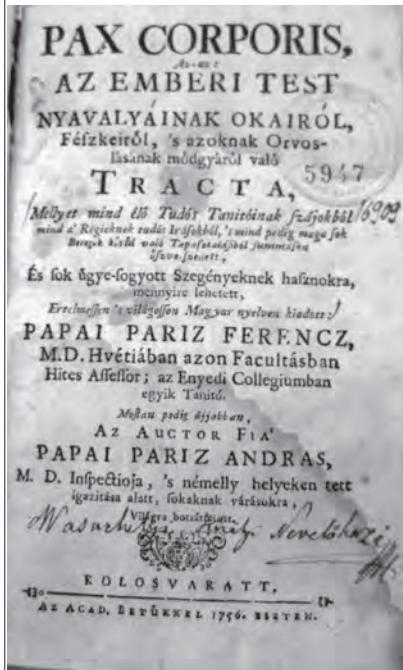 PAX CORPORIS,
Az-az:
AZ EMBERI TEST
NYAVALYÁINAK OKAIRÓL,
Féſzkeiről, 's azoknak Orvos-
lásának módgyáról való
5947
TRACTA,
Mellyet mind élő Tudós Tanitóinak ſzájokból
16909
mind a' Régieknek tudós Irásokból, 's mind pedig maga ſok
Betegek körül való Tapaſztalásiból ſummásan
öſzve-ſzedett,
És ſok ügye-fogyott Szegényeknek haſznokra,
mennyire lehetett,
Értelmeſſen 's világoſſon Magyar nyelven kiadott
PAPAI PARIZ FERENCZ,
M.D. Hvétiában azon Facultásban
Hites Aſſeſſor; az Enyedi Collegiumban
egyik Tanitó.
Moſtan pedig újjobban,
AZ AUCTOR FIA'
PAPAI PARIZ ANDRAS,
M. D. Inſpectioja, 's némelly helyeken tett
igazitása alatt, ſokaknak várásokra,
Világra botsáttatott.
Nevelőházi
KOLOSVARATT,
AZ ACAD. BETŰKKEL 1756. ESZTEN.